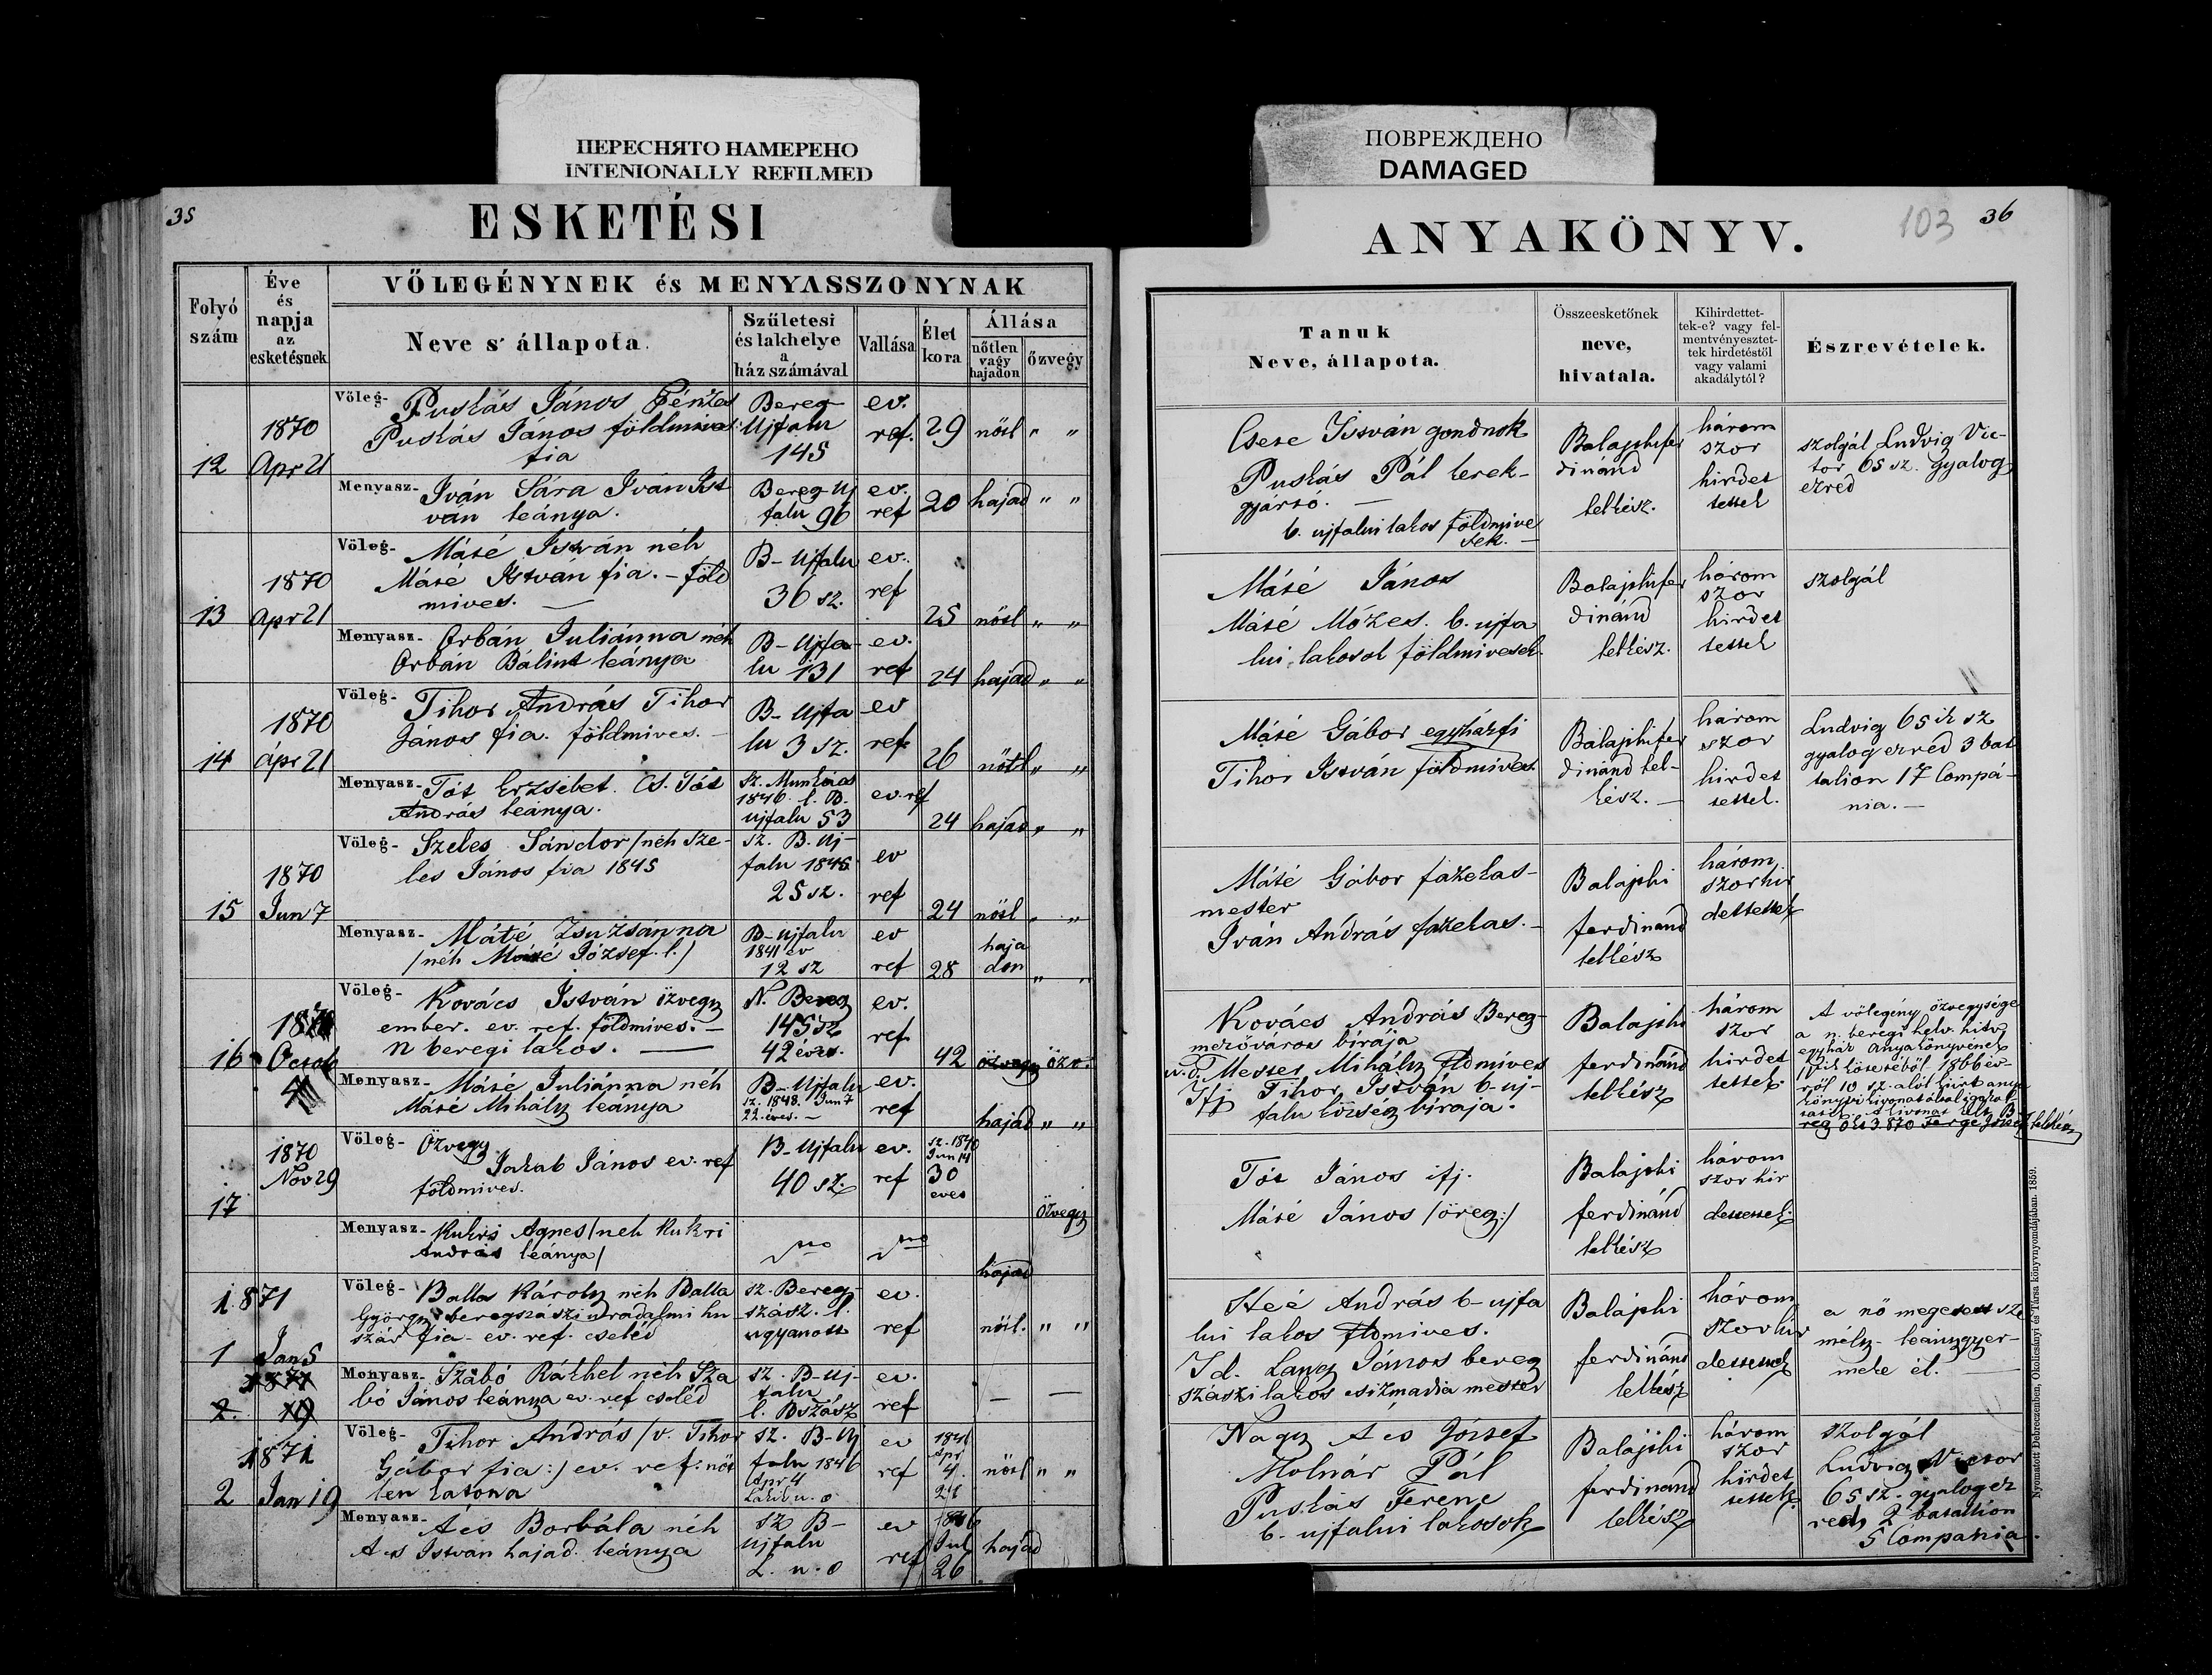 ПЕРЕСНЯТО НАМЕРЕНО
INTENIONALLY REFILMED
ПОВРЕЖДЕНО
DAMAGED
35
ESKETÉSI
Folyó
szám
Éve
és
napja
az
esketésnek
VŐLEGÉNYNEK és MENYASSZONYNAK
Neve s' állapota.
Születesi
és lakhelye
a
ház számával
Vallása
Élet
kora
Állása
nőtlen
vagy
hajadon
özvegy
12
1870
Apr 21
Vőleg-
Puskás János Pénzes
Puskás János földmives
fia
Bereg
Ujfalu
145
ev.
ref.
29
nőtl " "
Menyasz-
Iván Sára Iván Ist
ván leánya.
Bereg Uj
falu 96
ev.
ref
20
hajad " "
13
1870
Apr 21
Vőleg-
Máté István néh
Máté István fia. - föld
mives. —
B- Ujfalu
36 sz.
ev.
ref
25
nőtl " "
Menyasz-
Orbán Juliánna néh
Orbán Bálint leánya
B- Ujfa-
lu 131
ev.
ref
24
hajad " "
14
1870
Ápr 21
Vőleg-
Tihor András Tihor
János fia. földmives. -
B- Ujfa
lu 3 sz.
ev
ref
26
nőtl " "
Menyasz-
Tót Erzsébet. Cs. Tót
András leánya.
Sz. Munkács
1846. l. B.
ujfalu 53
ev. ref
24
hajad " "
15
1870
Jun 7
Vőleg-
Szeles Sándor /néh Sze-
les János fia 1845
sz. B. Uj-
falu 1845
25 sz.
ev
ref
24
nőtl " "
Menyasz-
Máté Zsuzsánna
/néh Máté József l./
B- Ujfalu
1841 év
12 sz
ev
ref
28
haja
don " "
16
Octob
Vőleg-
Kovács István özvegy
ember. ev. ref. földmives. -
N beregi lakos. —
N. Bereg
145 sz
42 éves.
ev.
ref
42
özv.
Menyasz-
Máté Juliánna néh
Máté Mihály leánya
B- Ujfalu
sz. 1848. Jun 7
22 éves. -
ev.
ref
hajad " "
17
1870
Nov 29
Vőleg-
Özvegy
Jakab János ev. ref
földmives.
B- Ujfalu
40 sz.
ev.
ref
sz. 1840
Jun 14
30
éves
özvegy
Menyasz-
Kukri Agnes /neh Kukri
András leánya/
hajad
1871
1
Jan 5
Vőleg-
Balla Károly néh Balla
György beregszászi uradalmi hu
szár fia - ev. ref. cseléd
sz. Bereg-
szász. l.
ugyanott
ev.
ref
nőtl. " "
Menyasz-
Szabó Ráchel néh Sza
bó János leánya ev. ref cseléd
sz. B- Uj-
falu
l. Bszász
ev.
ref
— —
2
1871
Jan 19
Vőleg-
Tihor András /v. Tihor
Gábor fia:/ ev. ref. nőt
len katona
sz. B- Uj
falu 1846
Apr 4
ev
ref
Apr
4.
nőtl " "
Menyasz-
Ács Borbála néh
Ács István hajad. leánya
sz B-
Ujfalu
L. u. o
ev
ref
Jul
26
hajad
103
36
ANYAKÖNYV.
Tanuk
Neve, állapota.
Összeesketőnek
neve,
hivatala.
Kihirdettet-
tek-e? vagy fel-
mentvényesztet-
tek hirdetéstől
vagy valami
akadálytól?
Észrevételek.
Csere István gondnok
Puskás Pál kerék-
gyártó. —
b. ujfalui lakos földmive
sek. -
Balajthi fer
dinánd
lelkész.
három
szor
hirdet
tettek
szolgál Ludvig Vic-
tor 65 sz. gyalog
ezred
Máté János
Máté Mózes. b. ujfa
lui lakosok földmivesek.
Balajthi fer
dinánd
lelkész.
három
szor
hirdet
tettek
szolgál
Máté Gábor egyházfi
Tihor István földmives
Balajthi fer
dinánd lel-
kész. -
három
szor
hirdet
tettek.
Ludvig 65 ik sz
gyalog ezred 3 bat
talion 17 Compá-
nia. -
Máté Gábor fazekas-
mester
Iván András fazekas. -
Balajthi
ferdinánd
lelkész
három
szor hir
dettettek
Kovács András Bereg-
mezőváros birája
Mester Mihály földmives
Ifj Tihor István b- uj-
falu község birája.
Balajthi
ferdinánd
lelkész
három
szor
hirdet
tettek
A vőlegény özvegysége
a n. beregi helv. hitv.
egyház anyakönyvének
kötetéből 1866 év-
ről 10 sz. alól kiirt anya
könyvi kivonat által igazol
Tót János ifj.
Máté János /öreg:/
Balajthi
ferdinánd
lelkész
három
szor hir
dettettek
András b- ujfa
lui lakos földmives.
Id. Lang János bereg
szászi lakos csizmadia mester
Balajthi
ferdinánd
lelkész
három
szor hir
dettettek
a nő megesett sze
mély - leánygyer-
meke él. —
Nagy Ács József
Molnár Pál
Puskás Ferenc
b. ujfalui lakosok
Balajthi
ferdinánd
lelkész
három
szor
hirdet
tettek
szolgál
Ludvig Victor
65 sz. gyalog ez
red 2 batallion
5 Compania.
Nyomatott Debreczenben, Okolicsányi és Társa könyvnyomdájában. 1859.